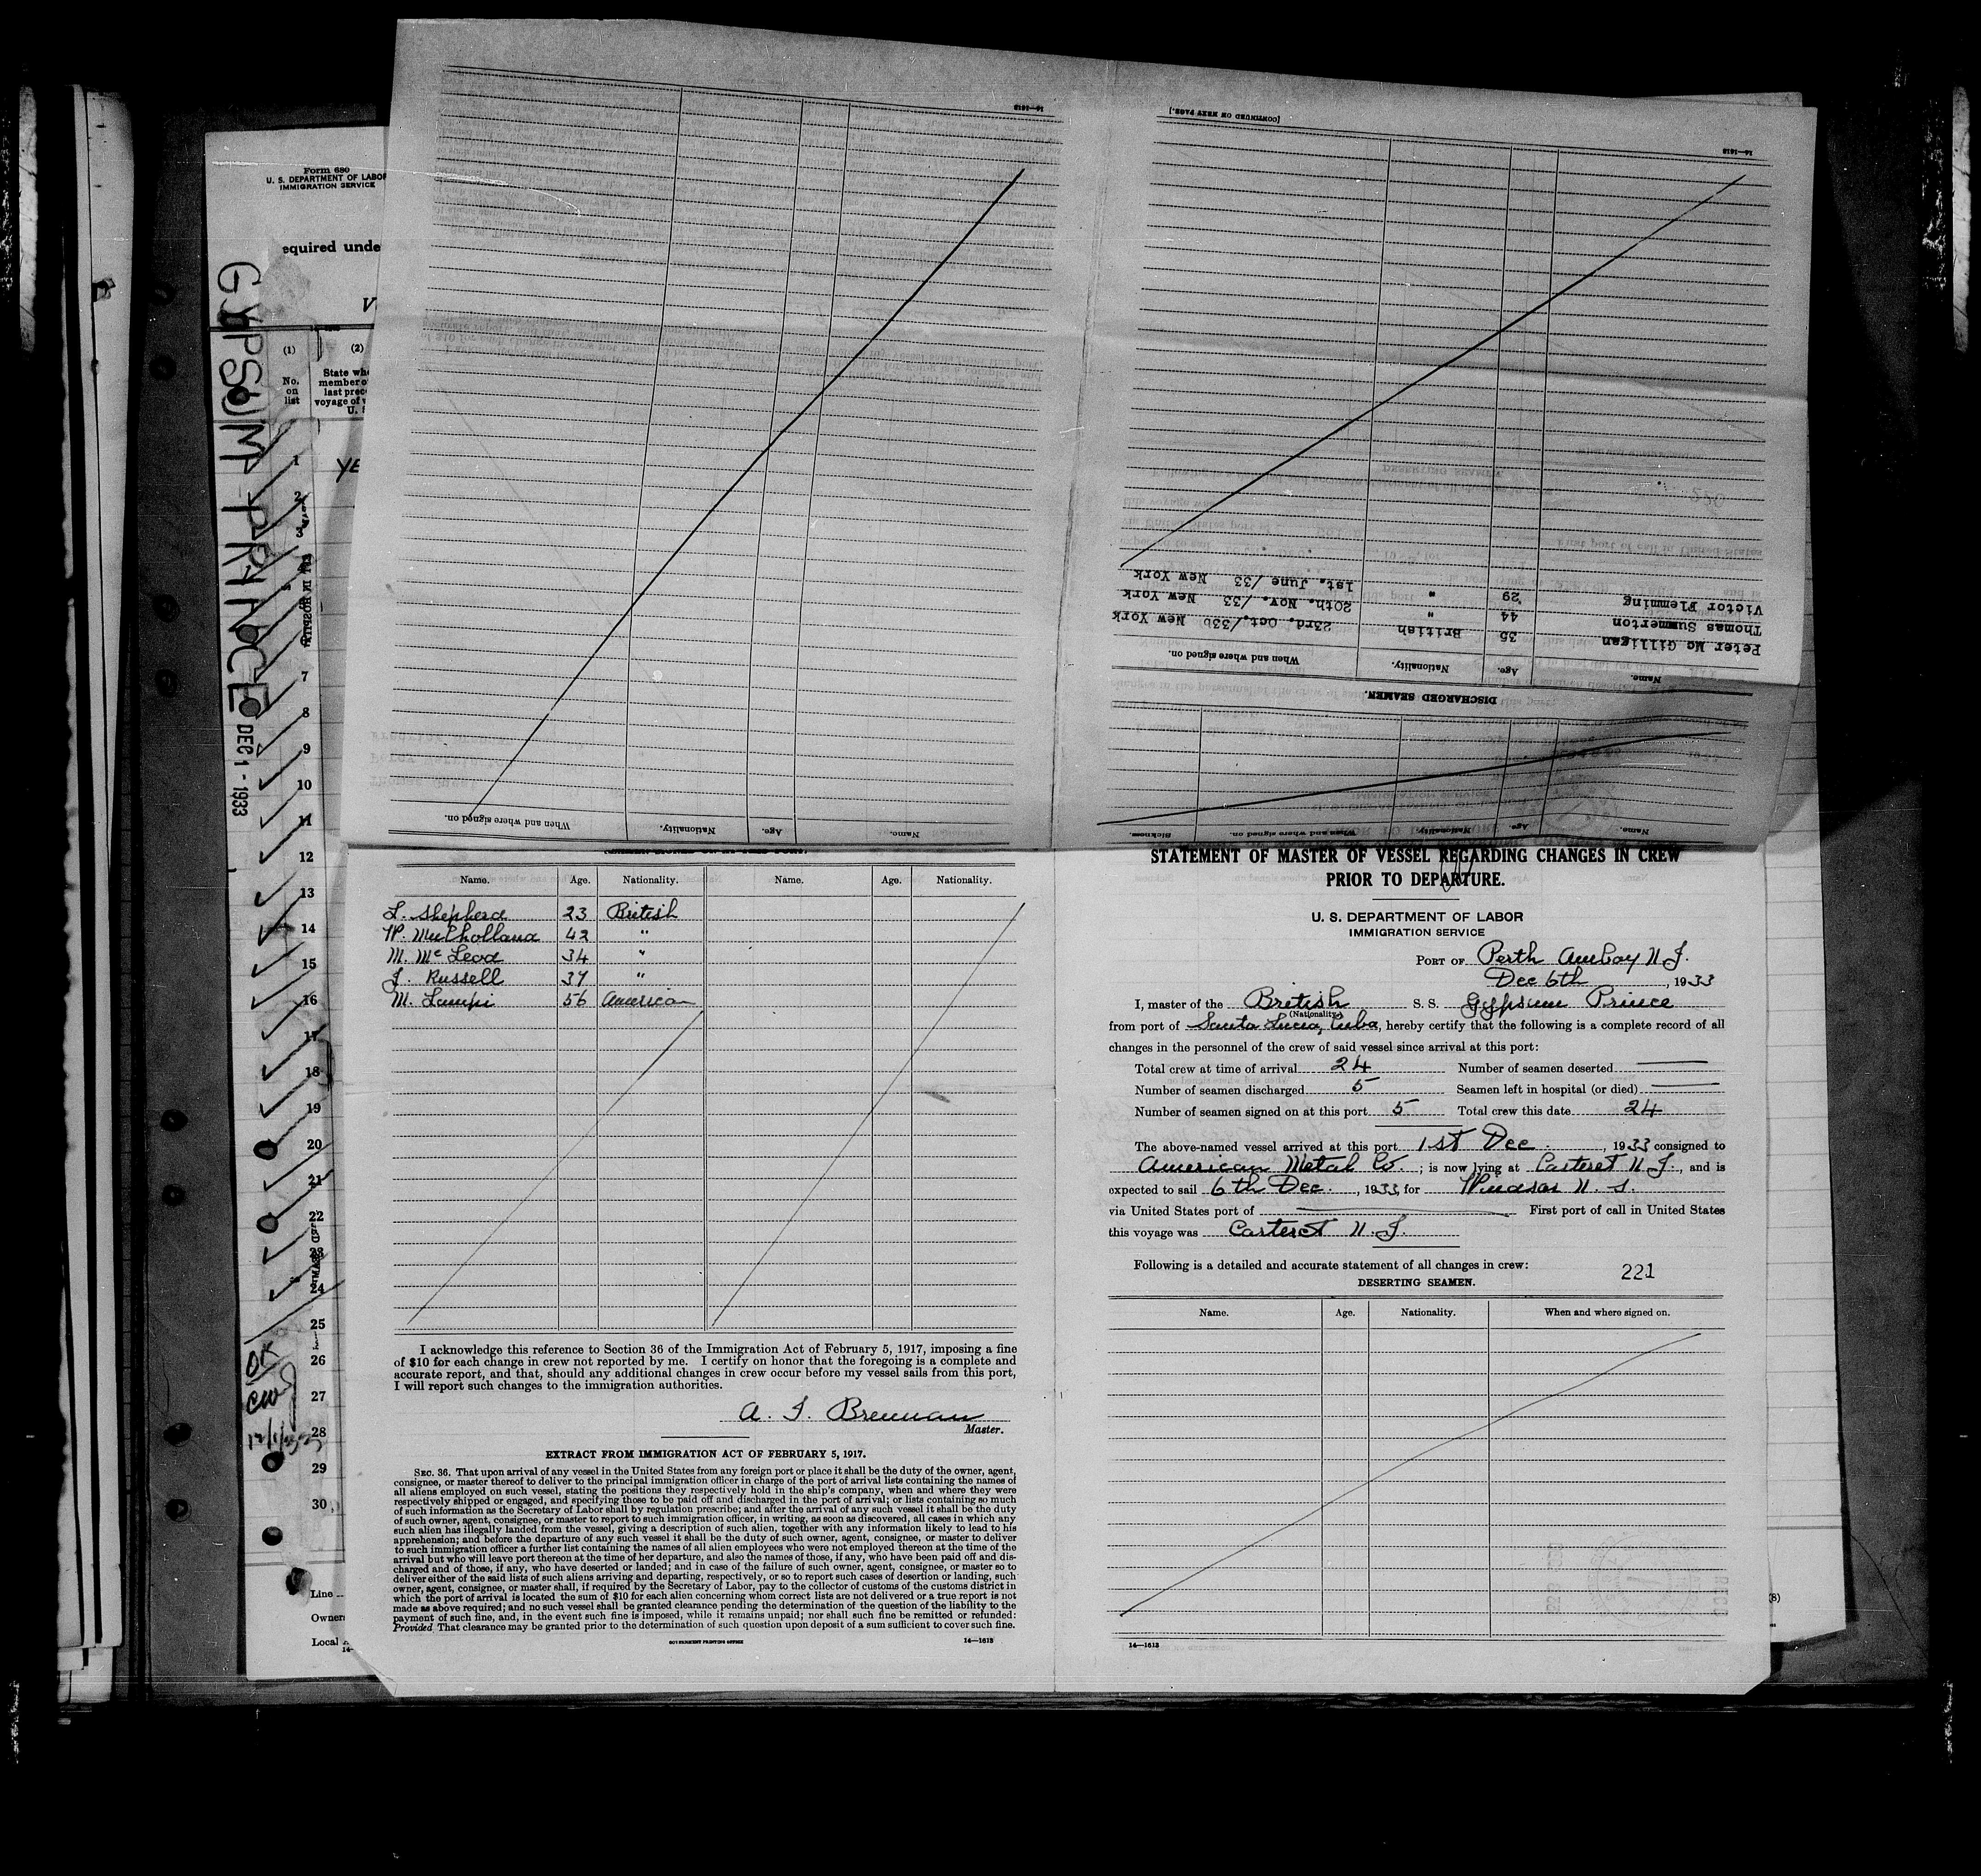 Form 680
U. S. DEPARTMENT OF LABOR
IMMIGRATION SERVICE
equired unde
V
(1)
(2)
No.
on
list
State whe
member o
last prec
voyage of v
U. S
GYPSUM PRINCE DEC 1 - 1933
YE
1
2
3
7
8
9
10
11
12
13
14
15
16
17
18
19
20
21
22
23
24
25
26
27
28
29
30
OK
Line
Owner
Local
14—1613
When and where signed on.
Nationality.
Age.
Name.
[CONTINUED ON NEXT PAGE.]
14—1613
DISCHARGED SEAMEN.
Name. Age. Nationality. When and where signed on.
Peter Mc Gilligan 35 British 23rd. Oct./33 New York
Thomas Summerton 44 " 20th. Nov. /33 New York
Victor Flemming 29 " 1st. June /33 New York
Name. Age. Nationality. When and where signed on. Sickness.
Name. Age. Nationality. Name. Age. Nationality.
L. Shepherd 23 British
W. Mulholland 42 "
M. Mc Leod 34 "
J. Russell 37 "
M. Lampi 56 American
I acknowledge this reference to Section 36 of the Immigration Act of February 5, 1917, imposing a fine
of $10 for each change in crew not reported by me. I certify on honor that the foregoing is a complete and
accurate report, and that, should any additional changes in crew occur before my vessel sails from this port,
I will report such changes to the immigration authorities.
A. J. Brennan
Master.
EXTRACT FROM IMMIGRATION ACT OF FEBRUARY 5, 1917.
SEC. 36. That upon arrival of any vessel in the United States from any foreign port or place it shall be the duty of the owner, agent,
consignee, or master thereof to deliver to the principal immigration officer in charge of the port of arrival lists containing the names of
all aliens employed on such vessel, stating the positions they respectively hold in the ship's company, when and where they were
respectively shipped or engaged, and specifying those to be paid off and discharged in the port of arrival; or lists containing so much
of such information as the Secretary of Labor shall by regulation prescribe; and after the arrival of any such vessel it shall be the duty
of such owner, agent, consignee, or master to report to such immigration officer, in writing, as soon as discovered, all cases in which any
such alien has illegally landed from the vessel, giving a description of such alien, together with any information likely to lead to his
apprehension; and before the departure of any such vessel it shall be the duty of such owner, agent, consignee, or master to deliver
to such immigration officer a further list containing the names of all alien employees who were not employed thereon at the time of the
arrival but who will leave port thereon at the time of her departure, and also the names of those, if any, who have been paid off and dis-
charged and of those, if any, who have deserted or landed; and in case of the failure of such owner, agent, consignee, or master so to
deliver either of the said lists of such aliens arriving and departing, respectively, or so to report such cases of desertion or landing, such
owner, agent, consignee, or master shall, if required by the Secretary of Labor, pay to the collector of customs of the customs district in
which the port of arrival is located the sum of $10 for each alien concerning whom correct lists are not delivered or a true report is not
made as above required; and no such vessel shall be granted clearance pending the determination of the question of the liability to the
payment of such fine, and, in the event such fine is imposed, while it remains unpaid; nor shall such fine be remitted or refunded:
Provided That clearance may be granted prior to the determination of such question upon deposit of a sum sufficient to cover such fine.
GOVERNMENT PRINTING OFFICE 14—1613
STATEMENT OF MASTER OF VESSEL REGARDING CHANGES IN CREW
PRIOR TO DEPARTURE.
U. S. DEPARTMENT OF LABOR
IMMIGRATION SERVICE
PORT OF Perth Amboy N J.
Dec 6th, 1933
I, master of the British S. S. Gypsum Prince
(Nationality)
from port of Santa Lucia, Cuba, hereby certify that the following is a complete record of all
changes in the personnel of the crew of said vessel since arrival at this port:
Total crew at time of arrival 24 Number of seamen deserted
Number of seamen discharged 5 Seamen left in hospital (or died)
Number of seamen signed on at this port 5 Total crew this date 24
The above-named vessel arrived at this port 1st Dec., 1933 consigned to
American Metal Co.; is now lying at Carteret N. J., and is
expected to sail 6th Dec., 1933, for Windsor N. S.
via United States port of First port of call in United States
this voyage was Carteret N. J.
Following is a detailed and accurate statement of all changes in crew:
221
DESERTING SEAMEN.
Name. Age. Nationality. When and where signed on.
14—1613
(8)